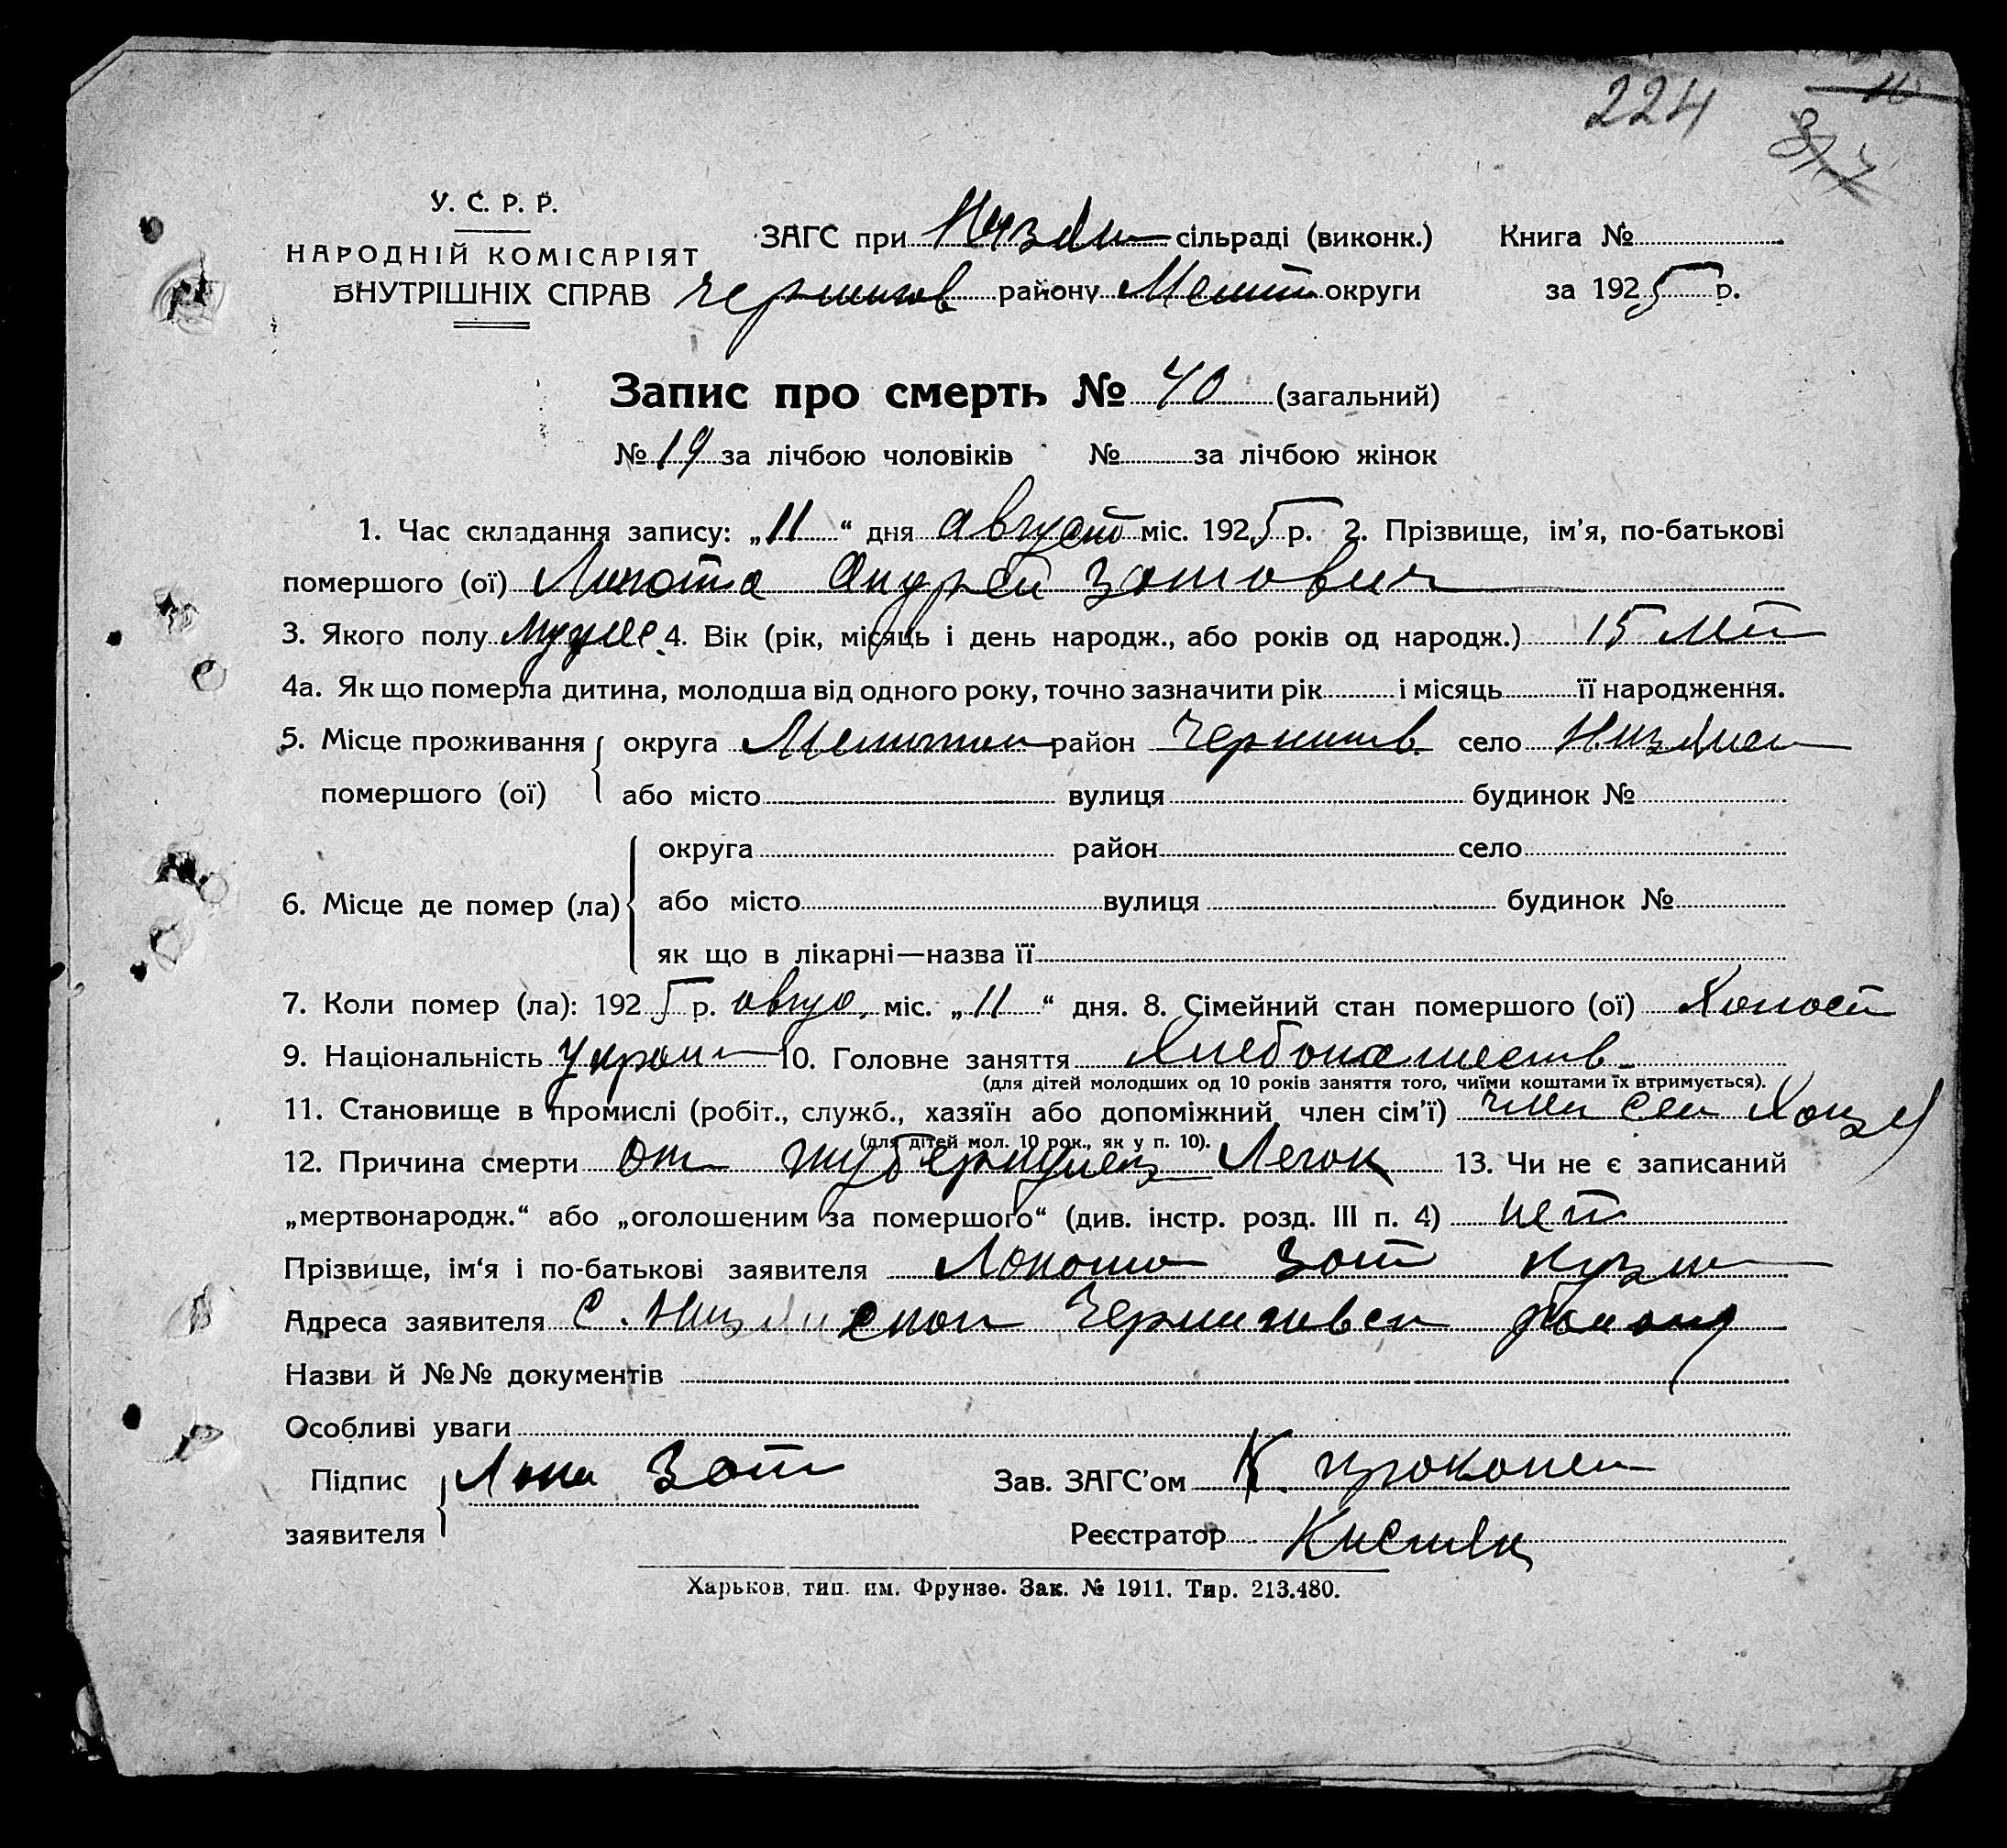 224
У. С. Р. Р.
НАРОДНІЙ КОМІСАРІЯТ
ВНУТРІШНІХ СПРАВ
ЗАГС при сільраді (виконк.) Книга №
Чернигов району Мелит округи за 1925 р.
Запис про смерть № 40 (загальний)
№ 19 за лічбою чоловіків № за лічбою жінок
1. Час складання запису: „11“ дня август міс. 1925 р. 2. Прізвище, ім’я, по-батькові
помершого (ої) Андрей Зотович
3. Якого полу 4. Вік (рік, місяць і день народж., або років од народж.) 15 лет
4а. Як що померла дитина, молодша від одного року, точно зазначити рік і місяць її народження.
5. Місце проживання округа Мелитопол район Чернигов. село
помершого (ої) або місто вулиця будинок №
округа район село
6. Місце де помер (ла) або місто вулиця будинок №
як що в лікарні—назва її
7. Коли помер (ла): 1925 р. авгус. міс. „11“ дня. 8. Сімейний стан помершого (ої) Холост
9. Національність Украин 10. Головне заняття Хлебопашеств
(для дітей молодших од 10 років заняття того, чиїми коштами їх втримується).
11. Становище в промислі (робіт., служб., хазяїн або допоміжний член сім’ї) член сем
(для дітей мол. 10 рок., як у п. 10).
12. Причина смерти от туберкулез Легок 13. Чи не є записаний
„мертвонародж.“ або „оголошеним за помершого“ (див. інстр. розд. III п. 4) нет
Прізвище, ім‘я і по-батькові заявителя Зот Кузм
Адреса заявителя с. Черниговск району
Назви й №№ документів
Особливі уваги
Підпис Зот Зав. ЗАГС’ом К. Прокопен
заявителя Реєстратор
Харьков, тип. им. Фрунзе. Зак. № 1911. Тир. 213.480.